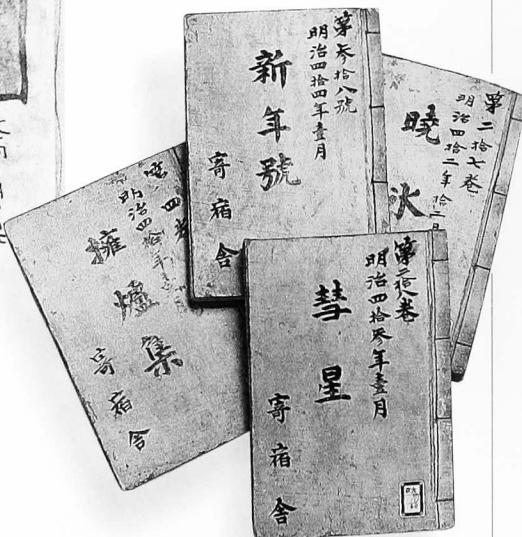 第参拾八號
明治四拾四年壹月
新年號
寄宿舎
第二拾七巻
明治四拾二年拾二月
曉氷
第四巻
明治四拾年
擁爐集
寄宿舎
第二拾八巻
明治四拾参年壹月
彗星
寄宿舎